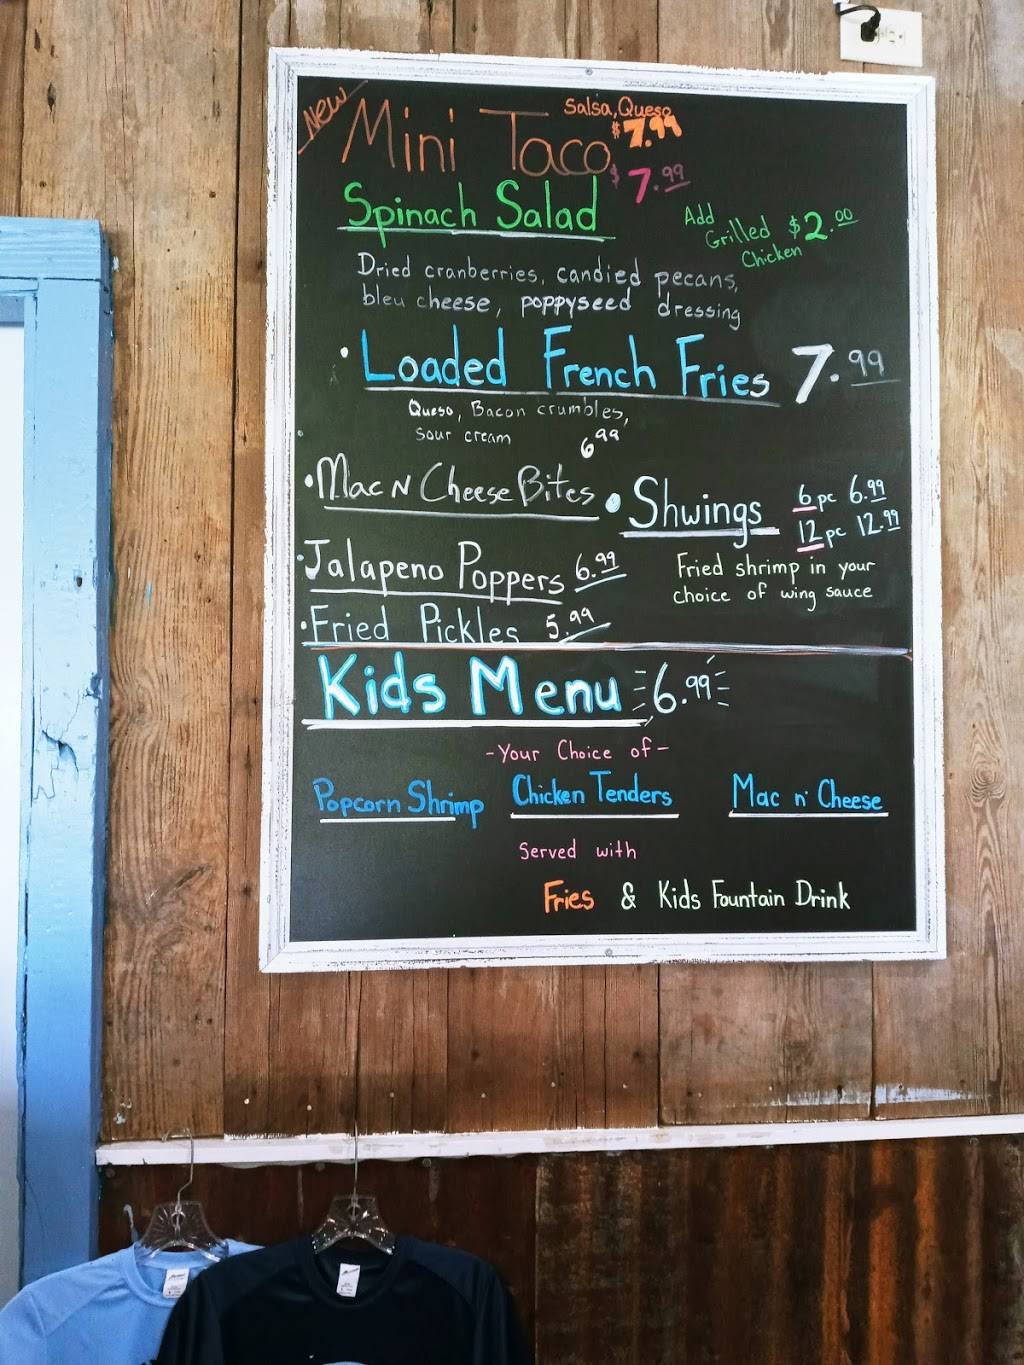 New
Mini Taco
Salsa, Queso
$7.99
$7.99
Spinach Salad
Add
Grilled $2.00
Chicken
Dried cranberries, candied pecans,
bleu cheese, poppyseed dressing
• Loaded French Fries 7.99
Queso, Bacon crumbles,
Sour cream
6.99
• Mac N Cheese Bites
• Shwings 6 pc 6.99
12 pc 12.99
Fried shrimp in your
choice of wing sauce
• Jalapeno Poppers 6.99
• Fried Pickles 5.99
Kids Menu 6.99
-Your Choice of-
Popcorn Shrimp Chicken Tenders Mac n' Cheese
Served with
Fries & Kids Fountain Drink